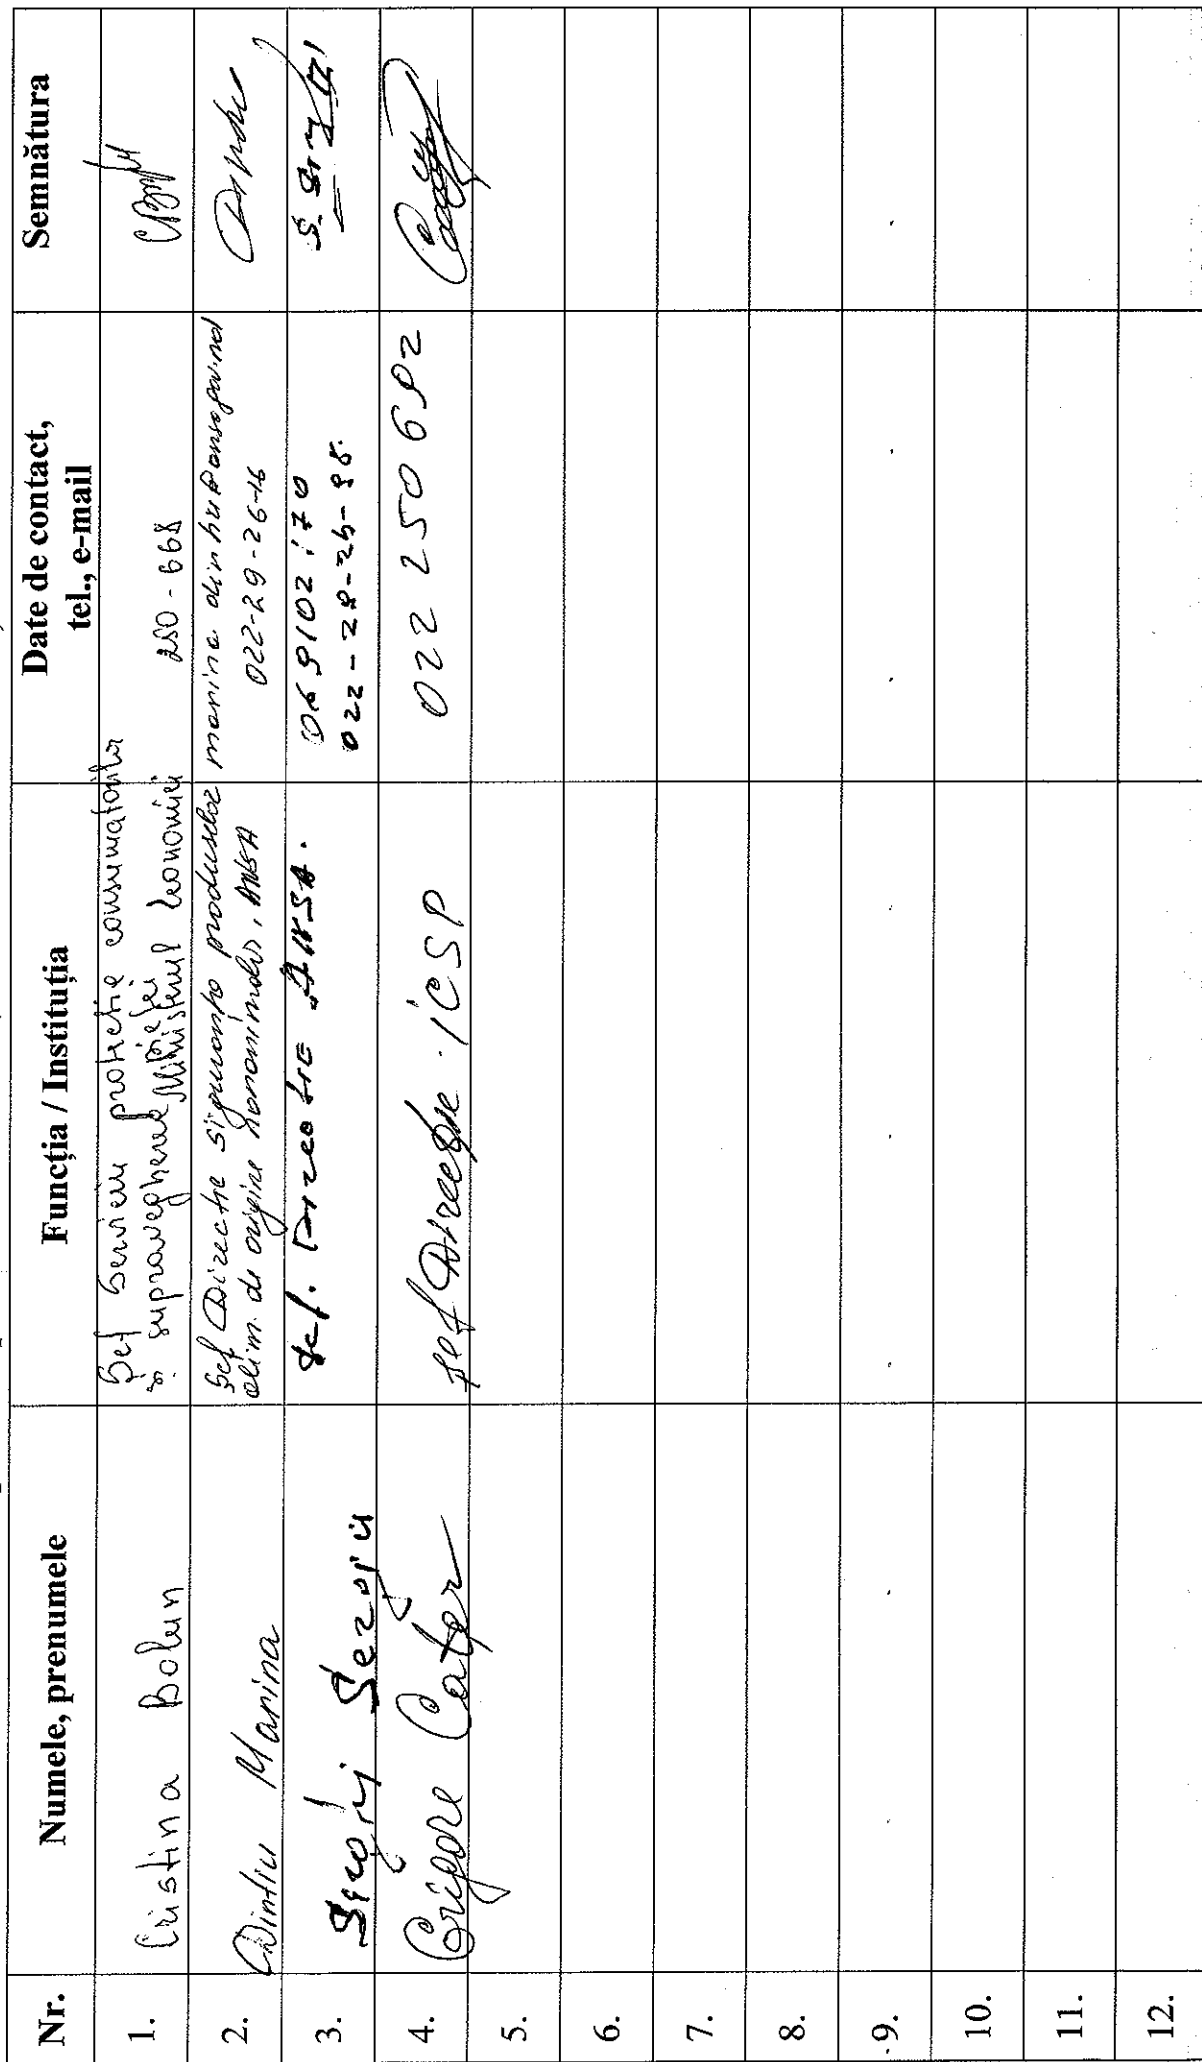 Nr.
Numele, prenumele
Funcția / Instituția
Date de contact,
tel., e-mail
Semnătura
1.
Cristina Bolun
Șef Serviciu protecția consumatorilor
și supraveghere pieței
Ministerul Economiei
250-668
2.
Dintiu Marina
Șef Direcție Siguranța produselor
alim. de origine nonanimaliă, ANSA
022-29-26-16
3.
Sergiu
Șef. Direcție ANSA.
069102170
022-28-25-98.
4.
Grigore
șef Direcție ICSP
022 250 682
5.
6.
7.
8.
9.
10.
11.
12.